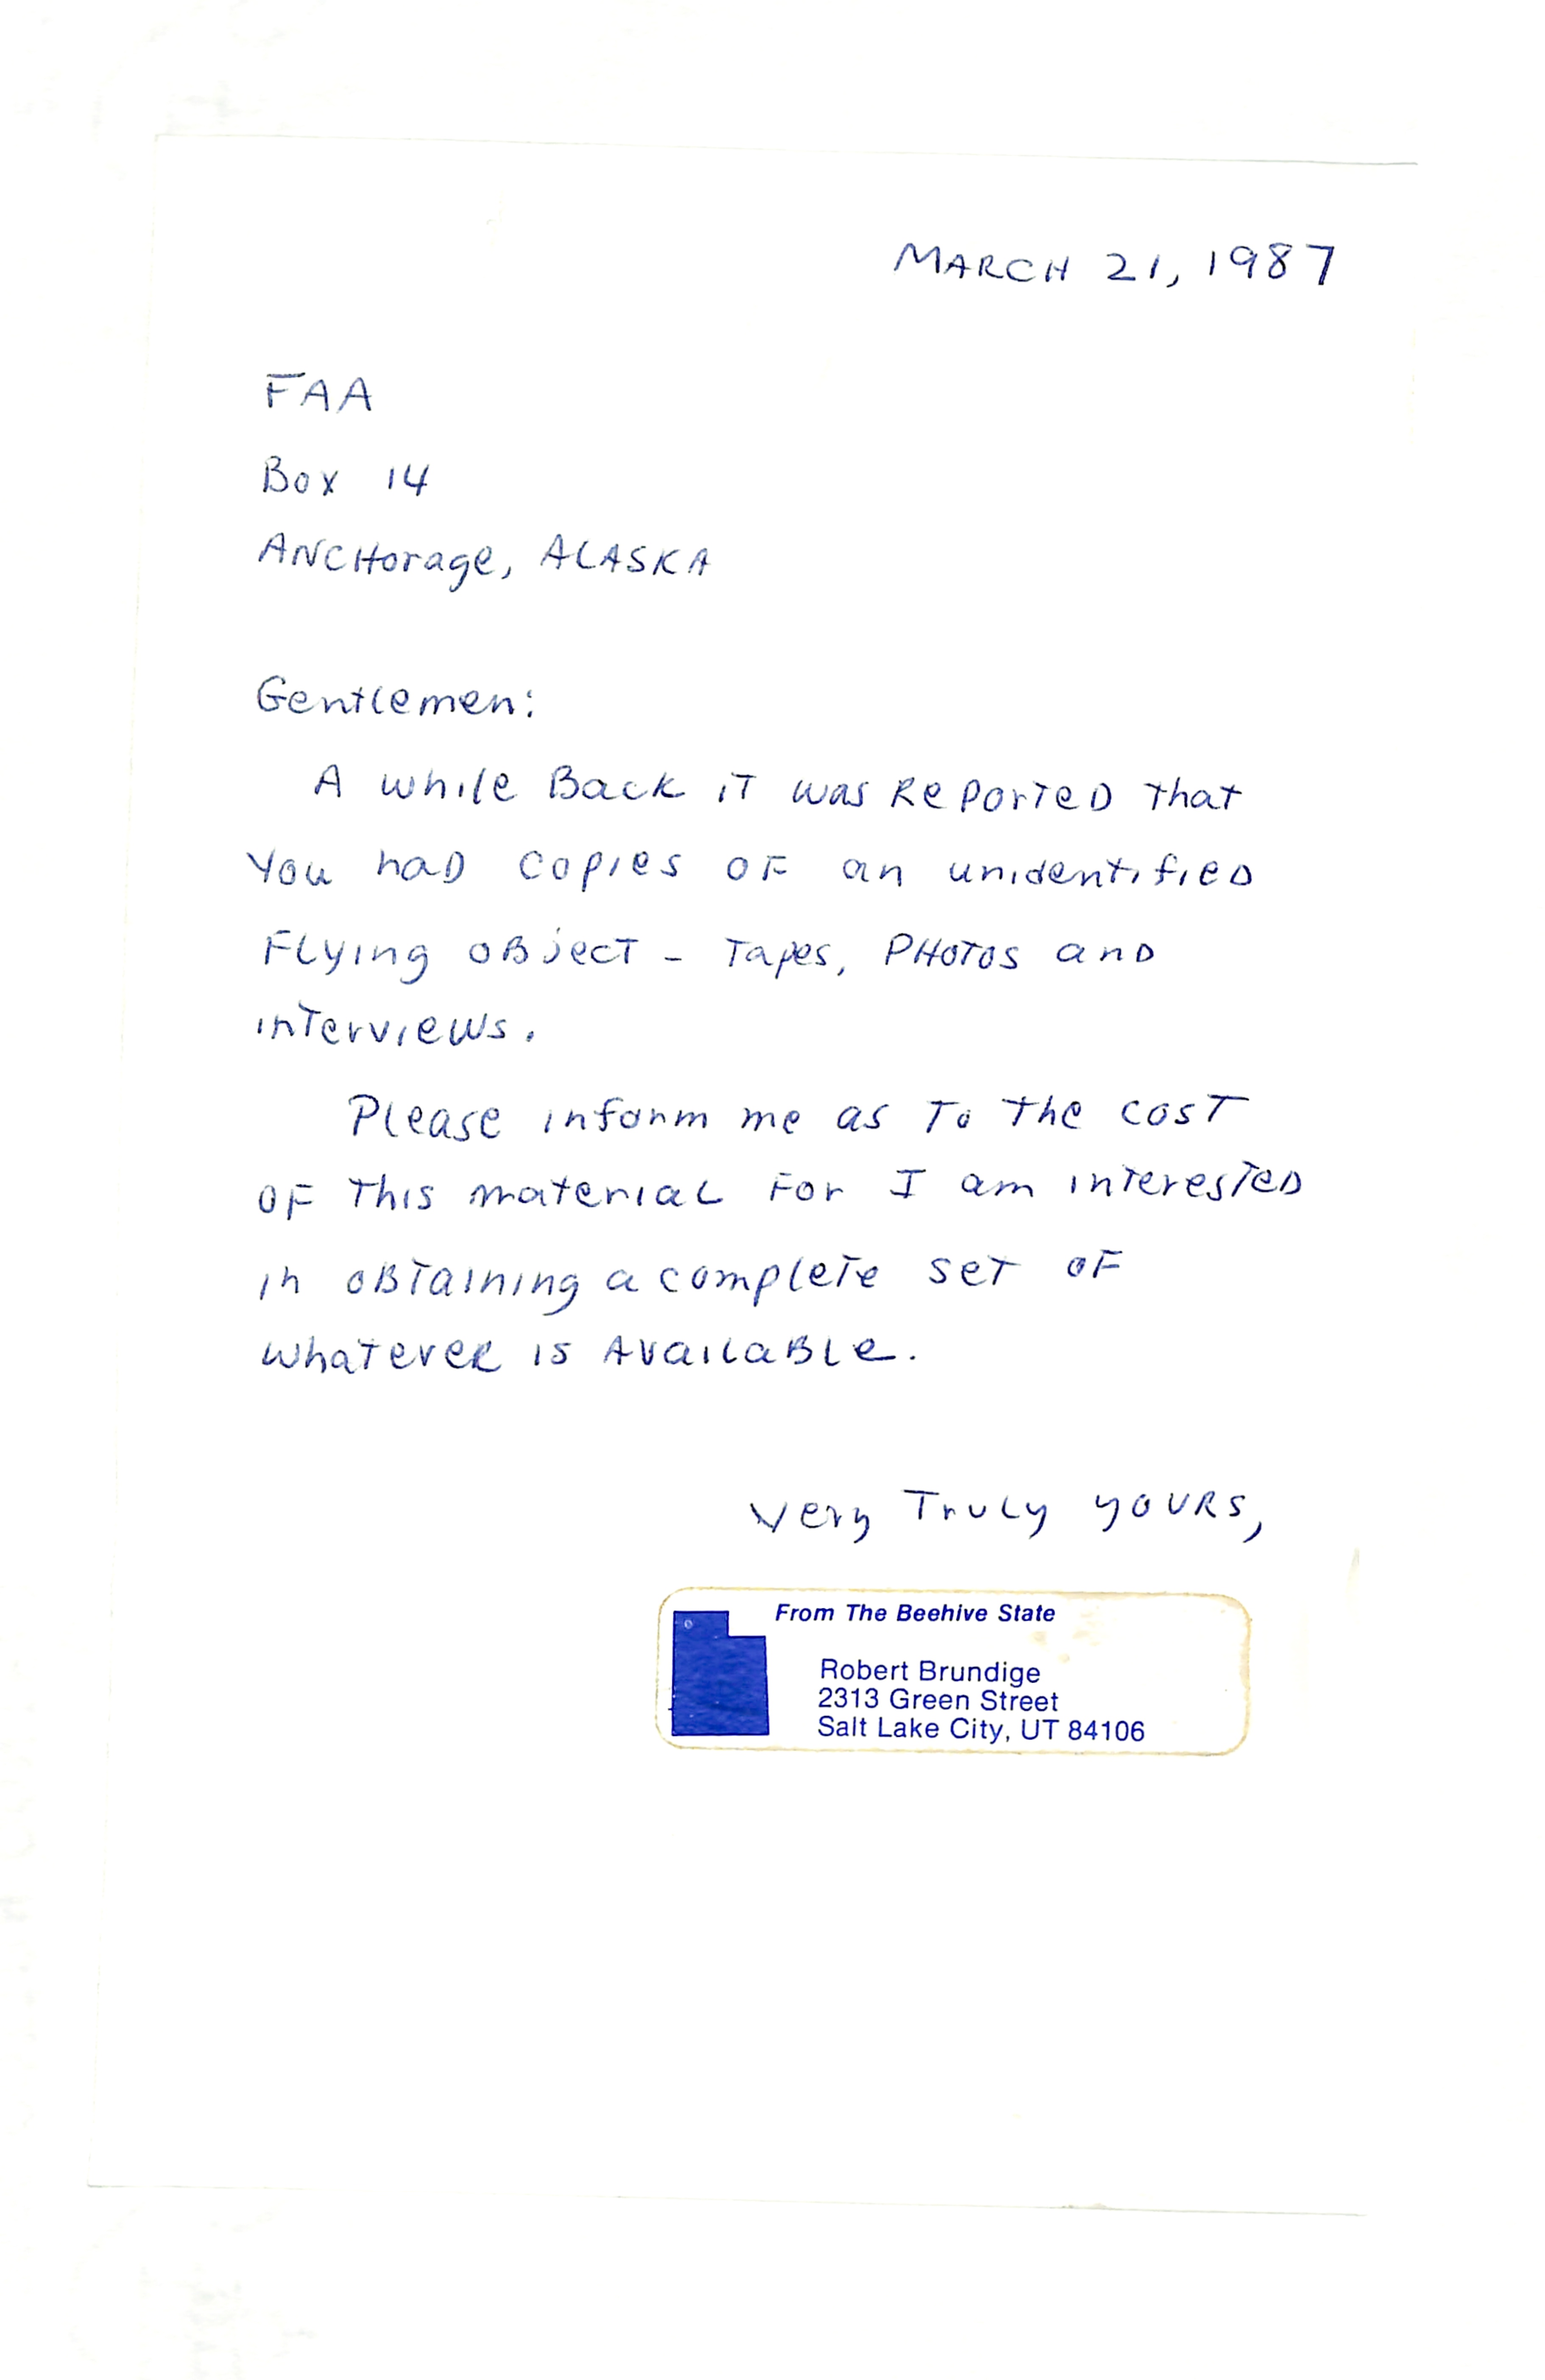 MARCH 21, 1987
FAA
Box 14
ANCHorage, ALASKA
Gentlemen:
A while Back iT was RePorTeD that
You haD copies OF an unidentifieD
FLying oBjecT - Tapes, PHoTos anD
inTerviews.
Please inform me as To the cosT
OF This material For I am inTeresTeD
in oBTaining a compleTe seT oF
whaTeveR is AvailaBLe.
Very Truly yours,
From The Beehive State
Robert Brundige
2313 Green Street
Salt Lake City, UT 84106